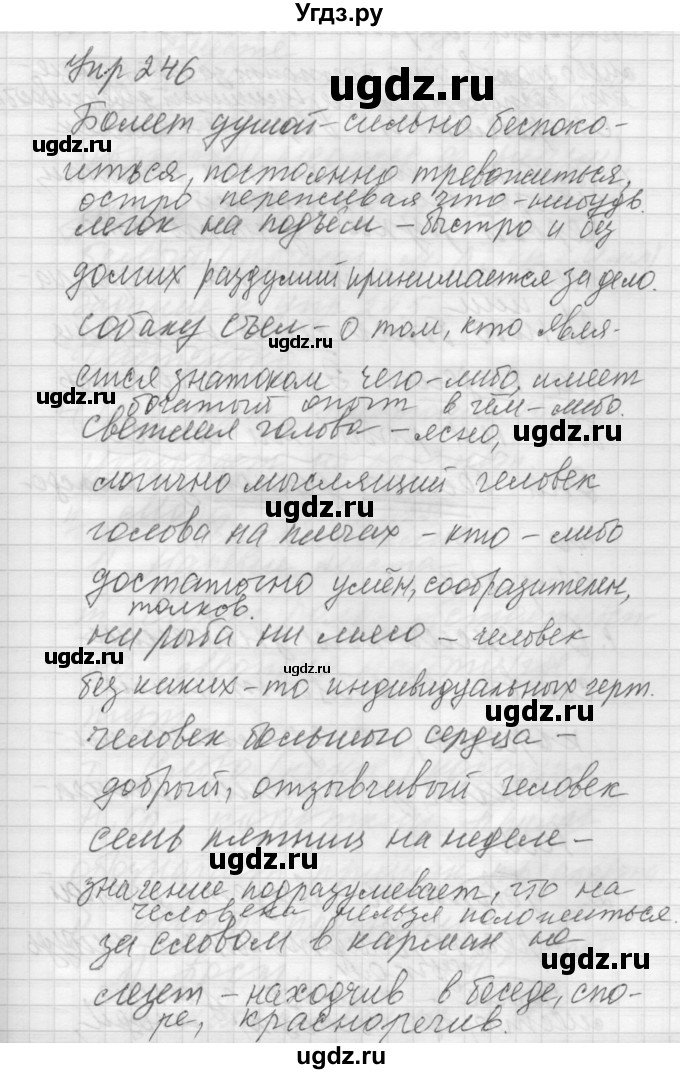 Угдз.ру
Упр 246
ugdz.ru
Болеет душой - сильно беспоко-
ugdz.ru
иться, постоянно тревожиться,
остро переживая что-нибудь.
легок на подъём - быстро и без
ugdz.ru
долгих раздумий принимается за дело.
собаку съел - о том, кто явля-
ugdz.ru
ется знатоком чего-либо, имеет
ugdz.ru
богатый опыт в чём-либо.
светлая голова - ясно,
ugdz.ru
логично мыслящий человек
ugdz.ru
голова на плечах - кто-либо
достаточно умён, сообразителен,
толков.
ни рыба ни мясо - человек
ugdz.ru
ugdz.ru
без каких-то индивидуальных черт.
ugdz.ru
человек большого сердца -
добрый, отзывчивый человек
семь пятниц на неделе -
ugdz.ru
значение подразумевает, что на
человека нельзя положиться.
за словом в карман не
ugdz.ru
лезет - находчив в беседе, спо-
ре, красноречив.
ugdz.ru